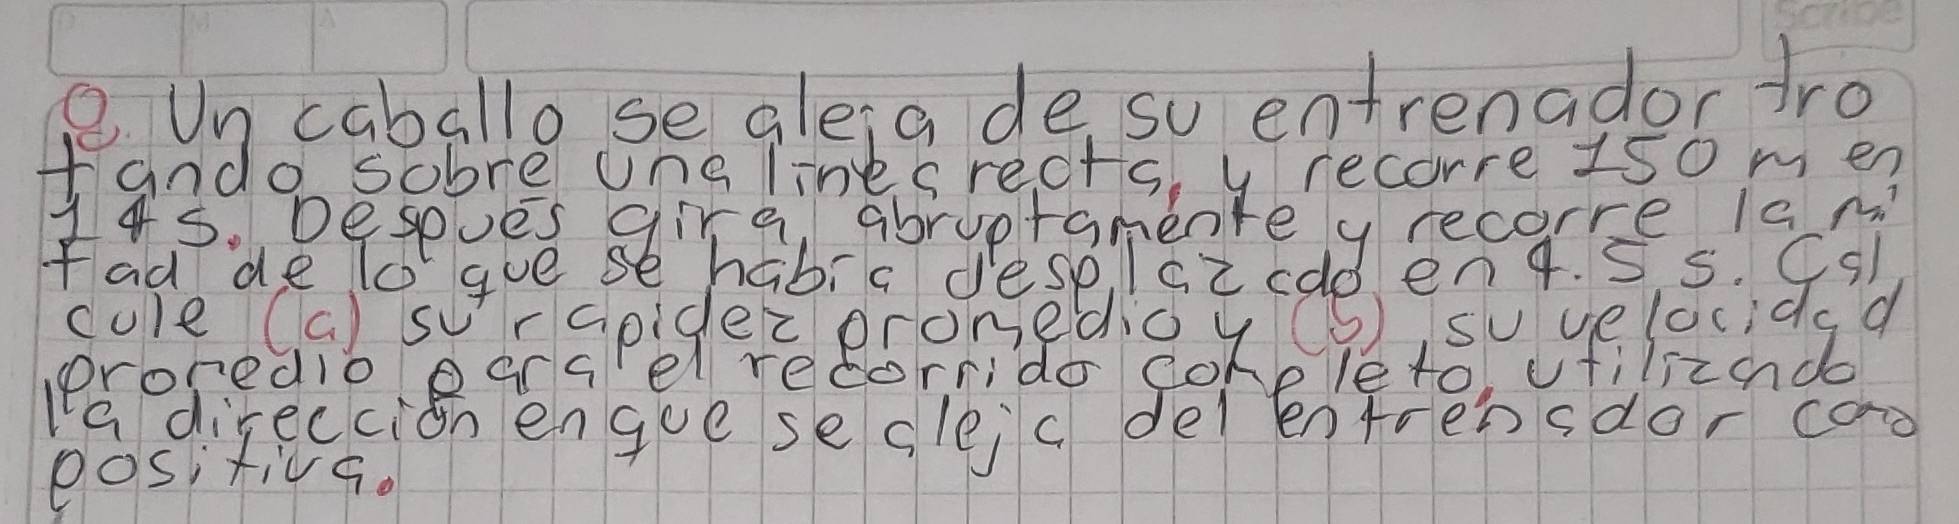 Scribe
8. Un caballo se aleja de su entrenador tro
tando sobre una linea recta, y recorre 150 m en
14 s. Después gira abruptamente y recorre la mi
tad de lo que se había desplazado en 4.5 s. Cal
cule (a) su rapidez promedio y (b) su velocidad
promedio para el recorrido completo, utilizando
la dirección en que se aleja del entrenador como
positiva.